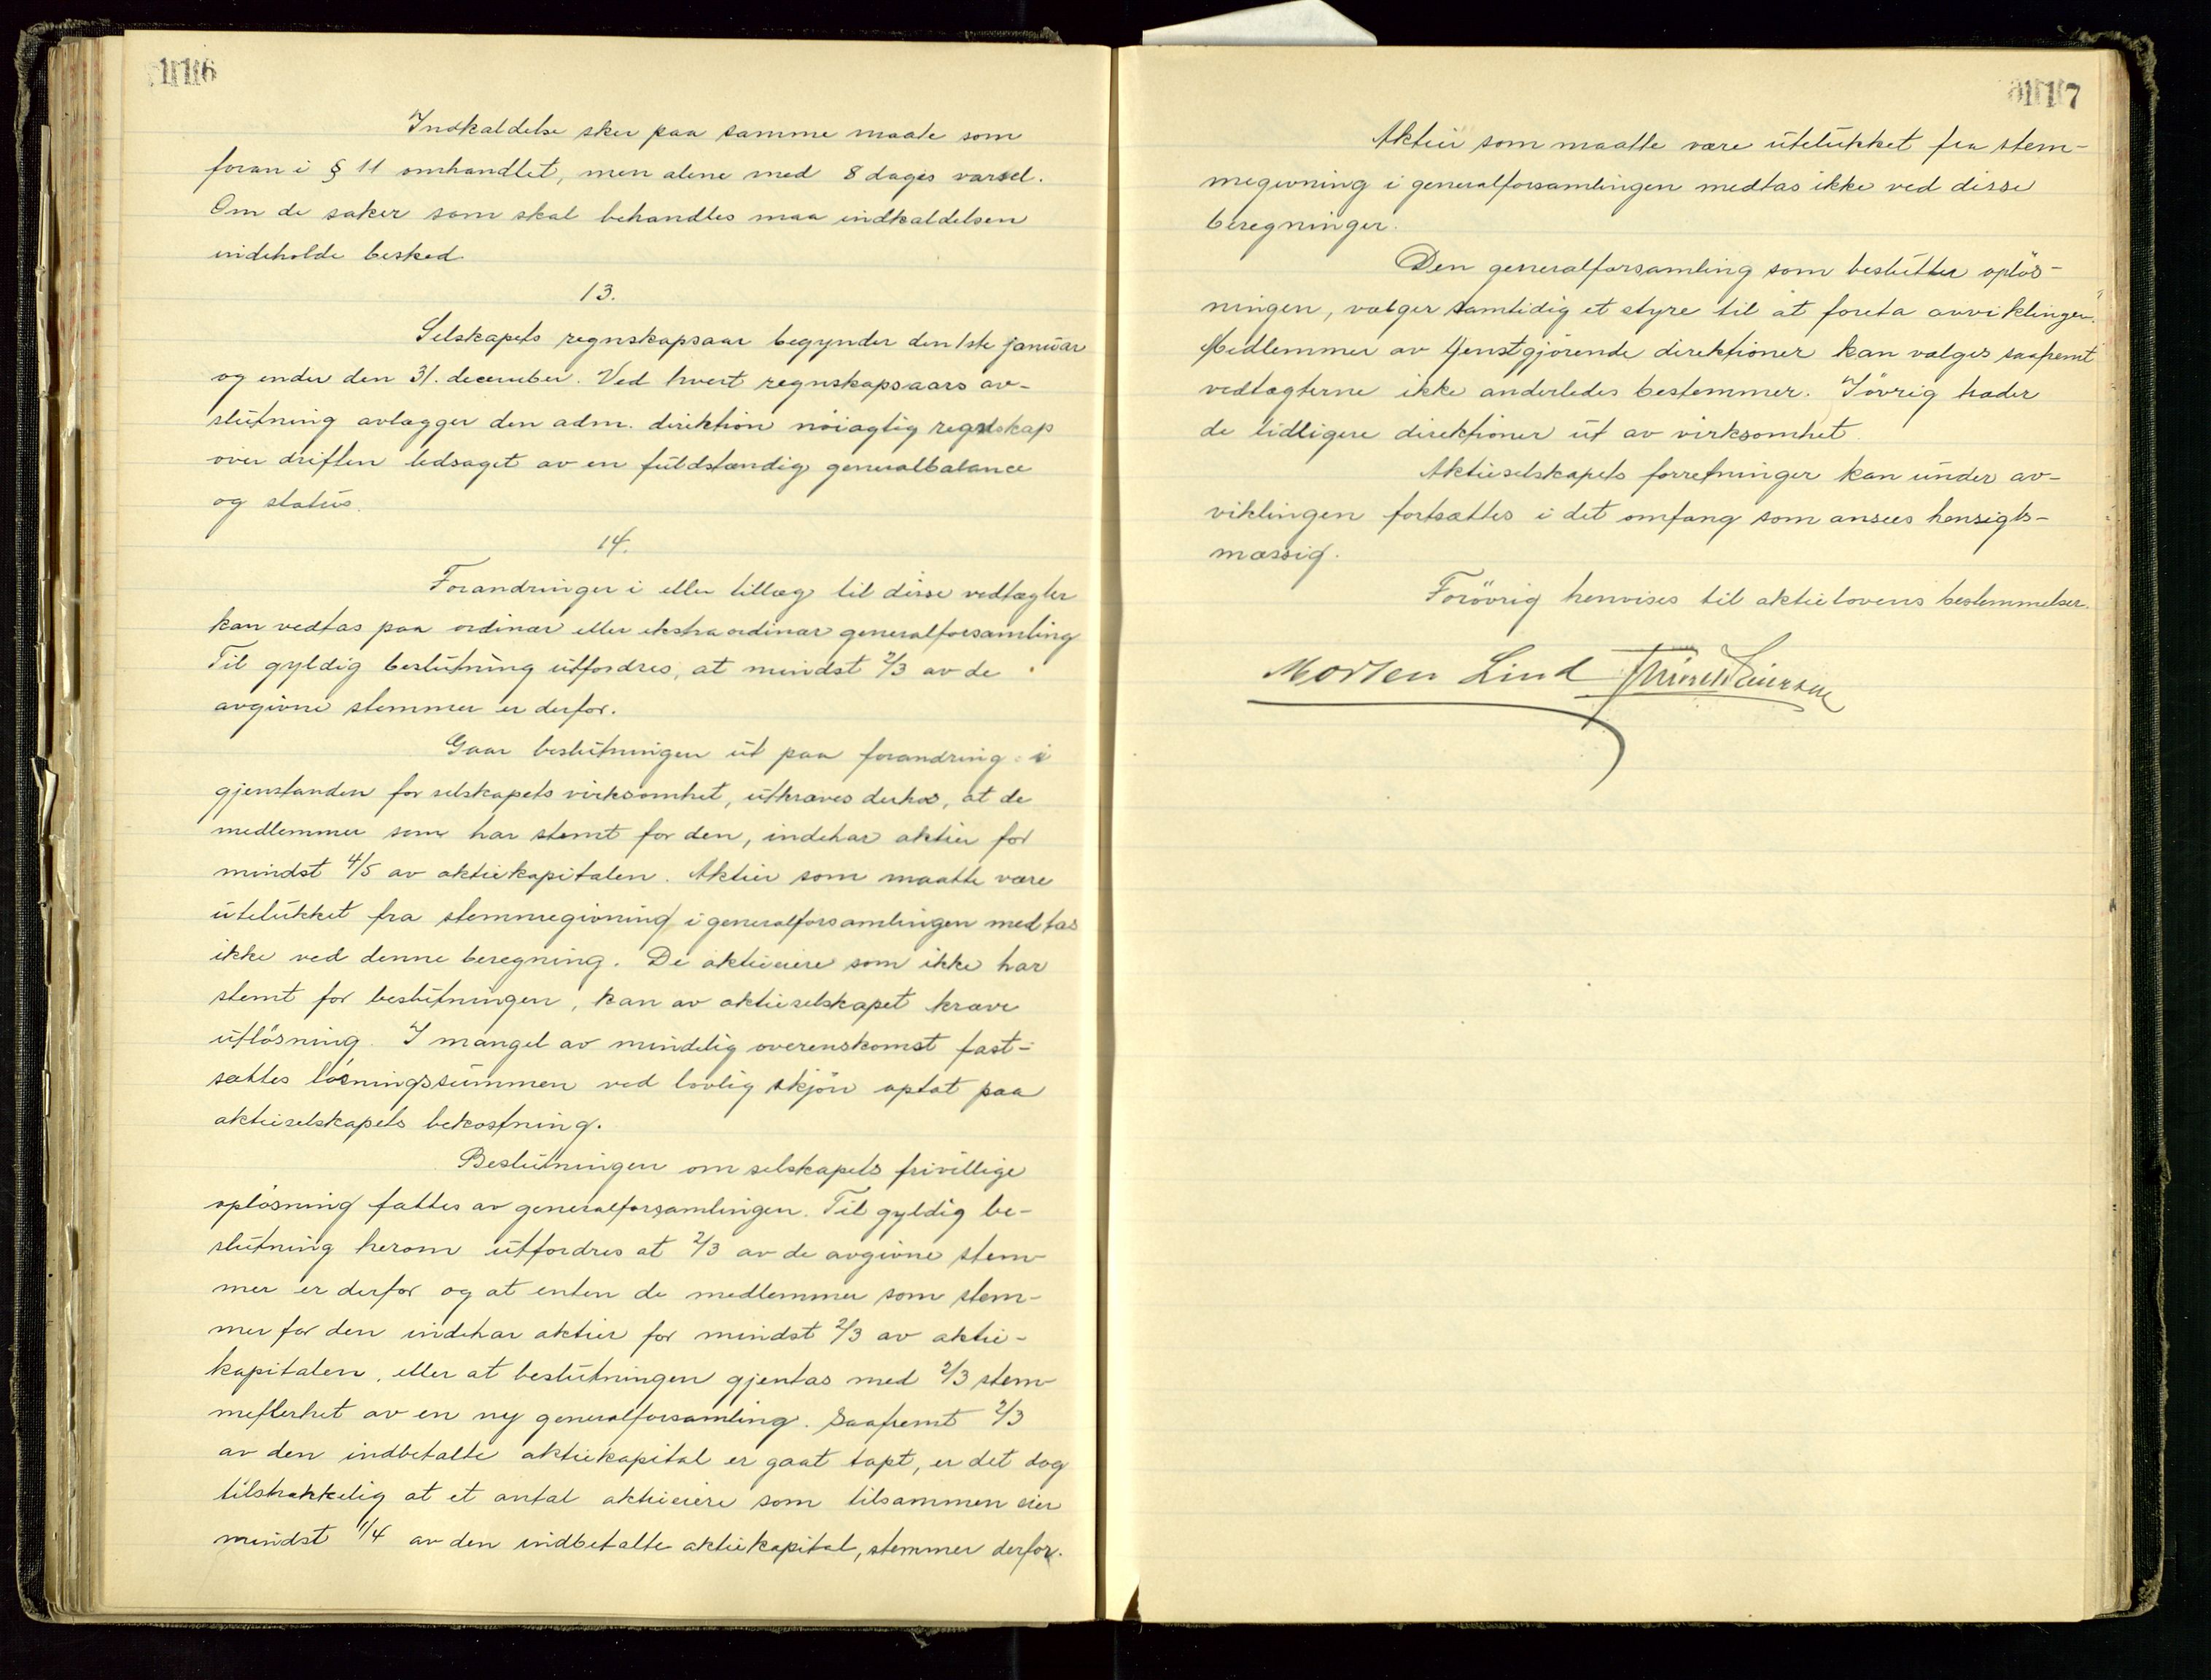 116
Indkaldelse sker paa samme maate som
foran i § 11 omhandlet, men alene med 8 dages varsel.
Om de saker som skal behandles maa indkaldelsen
indeholde besked.
13.
Selskapets regnskapsaar begynder den 1ste januar
og ender den 31. december. Ved hvert regnskapsaars av-
slutning avlægger den adm. direktion nöiagtig regnskap
over driften ledsaget av en fuldstændig generalbalance
og status.
14.
Forandringer i eller tillæg til disse vedtægter
kan vedtas paa ordinær eller ekstraordinær generalforsamling
Til gyldig beslutning utfordres, at mindst 2/3 av de
avgivne stemmer er derfor.
Gaar beslutningen ut paa forandring i
gjenstanden for selskapets virksomhet, utkræves derhos, at de
medlemmer som har stemt for den, indehar aktier for
mindst 4/5 av aktiekapitalen. Aktier som maatte være
utelukket fra stemmegivning i generalforsamlingen medtas
ikke ved denne beregning. De aktieeiere som ikke har
stemt for beslutningen, kan av aktieselskapet kræve
utlösning. I mangel av mindelig overenskomst fast-
sættes lösningssummen ved lovlig skjön optat paa
aktieselskapets bekostning.
Beslutningen om selskapets frivillige
oplösning fattes av generalforsamlingen. Til gyldig be-
slutning herom utfordres at 2/3 av de avgivne stem-
mer er derfor og at enten de medlemmer som stem-
mer for den indehar aktier for mindst 2/3 av aktie-
kapitalen, eller at beslutningen gjentas med 2/3 stem-
meflerhet av en ny generalforsamling. Saafremt 2/3
av den indbetalte aktiekapital er gaat tapt, er det dog
tilstrækkelig at et antal aktieeiere som tilsammen eier
mindst 1/4 av den indbetalte aktiekapital, stemmer derfor.
117
Aktier som maatte være utelukket fra stem-
megivning i generalforsamlingen medtas ikke ved disse
beregninger.
Den generalforsamling som beslutter oplös-
ningen, vælger samtidig et styre til at foreta avviklingen.
Medlemmer av tjenstgjörende direktioner kan vælges saafremt
vedtægterne ikke anderledes bestemmer. Iövrig træder
de tidligere direktioner ut av virksomhet.
Aktieselskapets forretninger kan under av-
viklingen fortsættes i det omfang som ansees hensigts-
mæssig.
Forövrig henvises til aktielovens bestemmelser.
Morten Lind